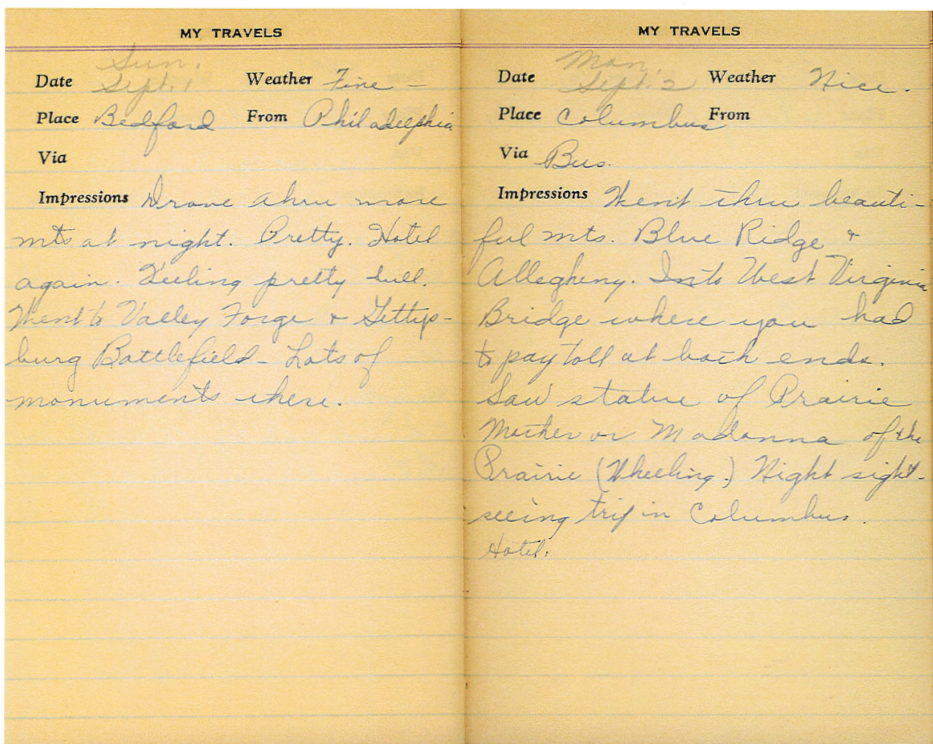 MY TRAVELS
Sun.
Date Sept. 1 Weather Fine –
Place Bedford From Philadelphia
Via
Impressions Drove thru more
mts at night. Pretty. Hotel
again. Feeling pretty dull.
Went to Valley Forge + Gettys-
burg Battlefield – Lots of
monuments there.
MY TRAVELS
Mon.
Date Sept. 2 Weather Nice.
Place Columbus From
Via Bus.
Impressions Went thru beauti-
ful mts. Blue Ridge +
Allegheny. Into West Virginia
Bridge where you had
to pay toll at both ends.
Saw statue of Prairie
Mother or Madonna of the
Prairie (Wheeling.) Night sight-
seeing trip in Columbus.
Hotel.